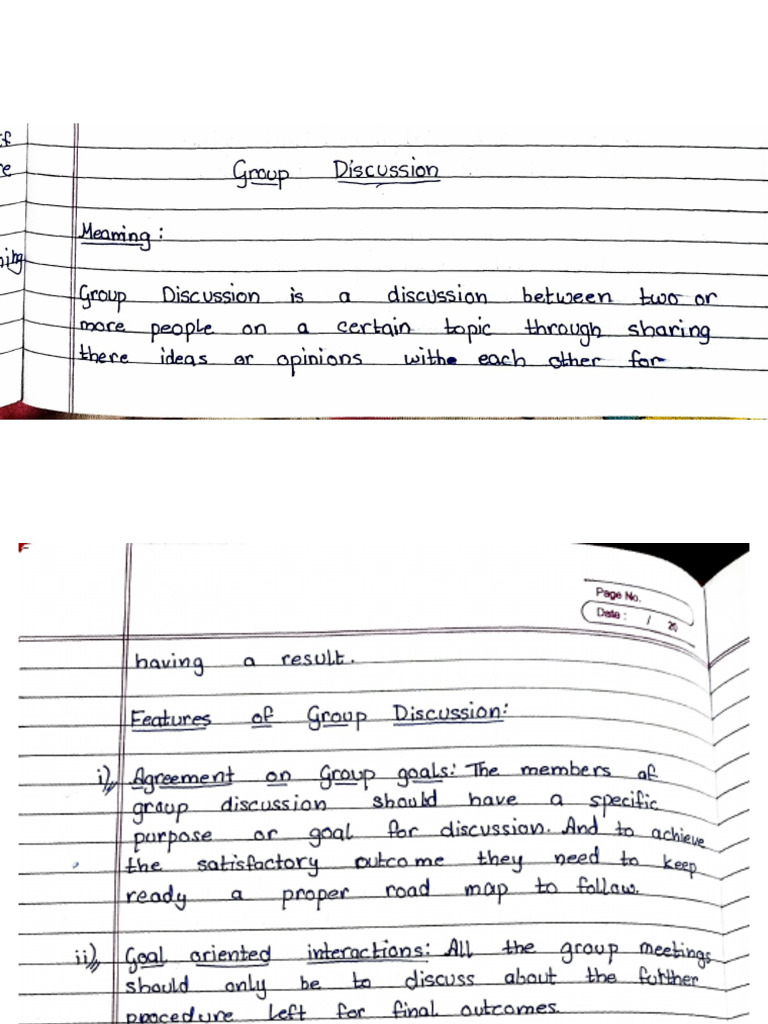 if
re
Group Discussion
Meaning :
ning
Group Discussion is a discussion between two or
more people on a certain topic through sharing
there ideas or opinions withe each other for
Page No.
Date : / 20
having a result.
Features of Group Discussion:
i) Agreement on Group goals: The members of
group discussion should have a specific
purpose or goal for discussion. And to achieve
the satisfactory outcome they need to keep
ready a proper road map to follow.
ii) Goal oriented interactions: All the group meetings
should only be to discuss about the further
procedure left for final outcomes.